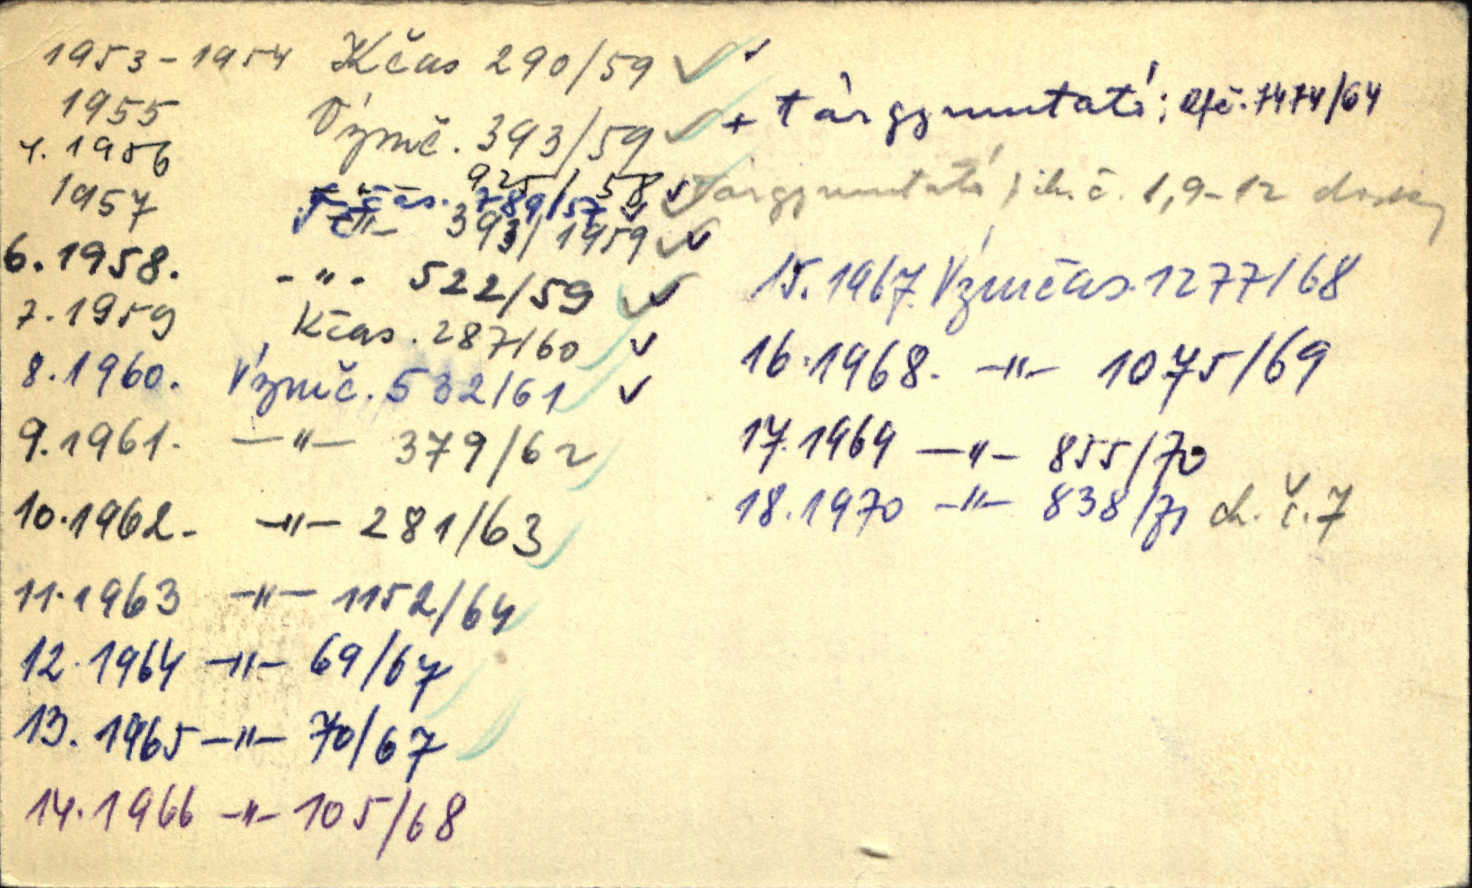 1953-1954 Kčas 290/59 ✓ ✓
1955 Výmč. 393/59 ✓ + tárgymutató; 7474/64
4. 1956 925/58 ✓ tárgymutató; ch. č. 1,9-12
1957 -"- 393/1959 ✓ ✓
6. 1958. -"- 522/59 ✓ ✓
7. 1959 Kčas. 287/60 ✓
8. 1960. Výmč. 532/61 ✓
9. 1961. -"- 379/62
10. 1962. -"- 281/63
11. 1963 -"- 1152/64
12. 1964 -"- 69/67
13. 1965 -"- 70/67
14. 1966 -"- 105/68
15. 1967. Výmčas. 1277/68
16. 1968. -"- 1075/69
17. 1969 -"- 855/70
18. 1970 -"- 838/71 ch. č. 7